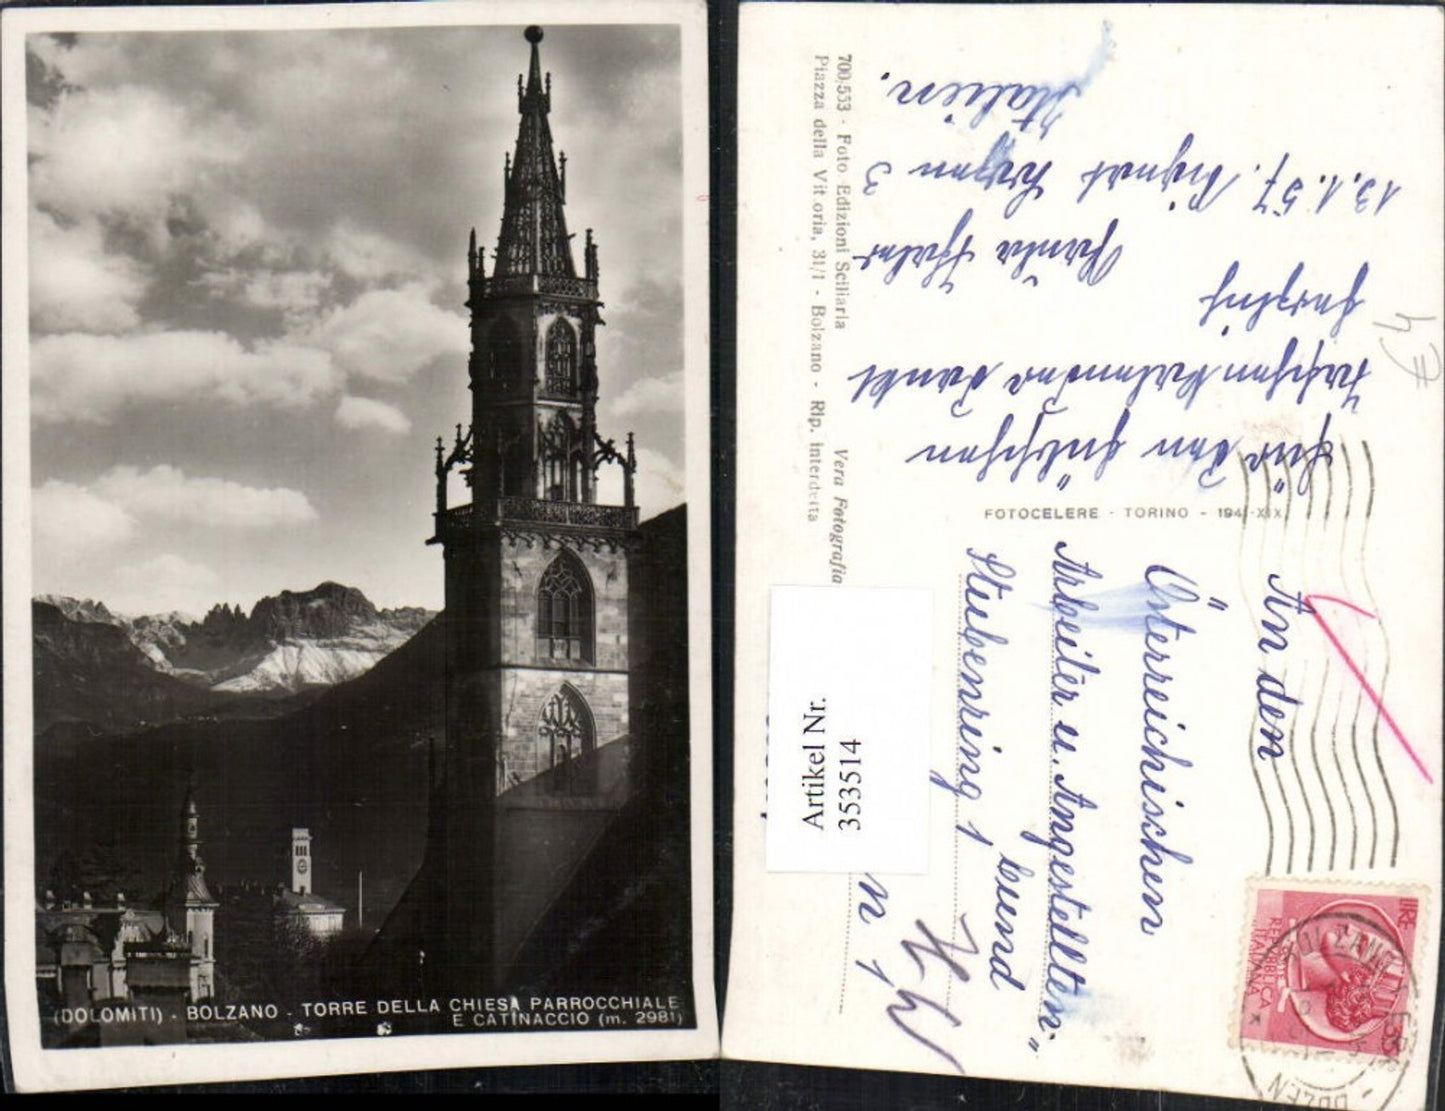 (DOLOMITI) - BOLZANO - TORRE DELLA CHIESA PARROCCHIALE
E CATINACCIO (m. 2981)
700-553 - Foto Edizioni Sciliaria
Piazza della Vittoria, 31/1 - Bolzano - Rip. interdetta
Vera Fotografia
FOTOCELERE - TORINO - 194 -XIX
Für den hübschen
dankt
herzlich
13.1.57.
3
Italien.
An den
"Österreichischen
Arbeiter u. Angestellten"
bund
Stubenring 1
n 1
Artikel Nr.
353514
€ 4
LIRE
REPUBBLICA
ITALIANA
BOLZANO
BOZEN